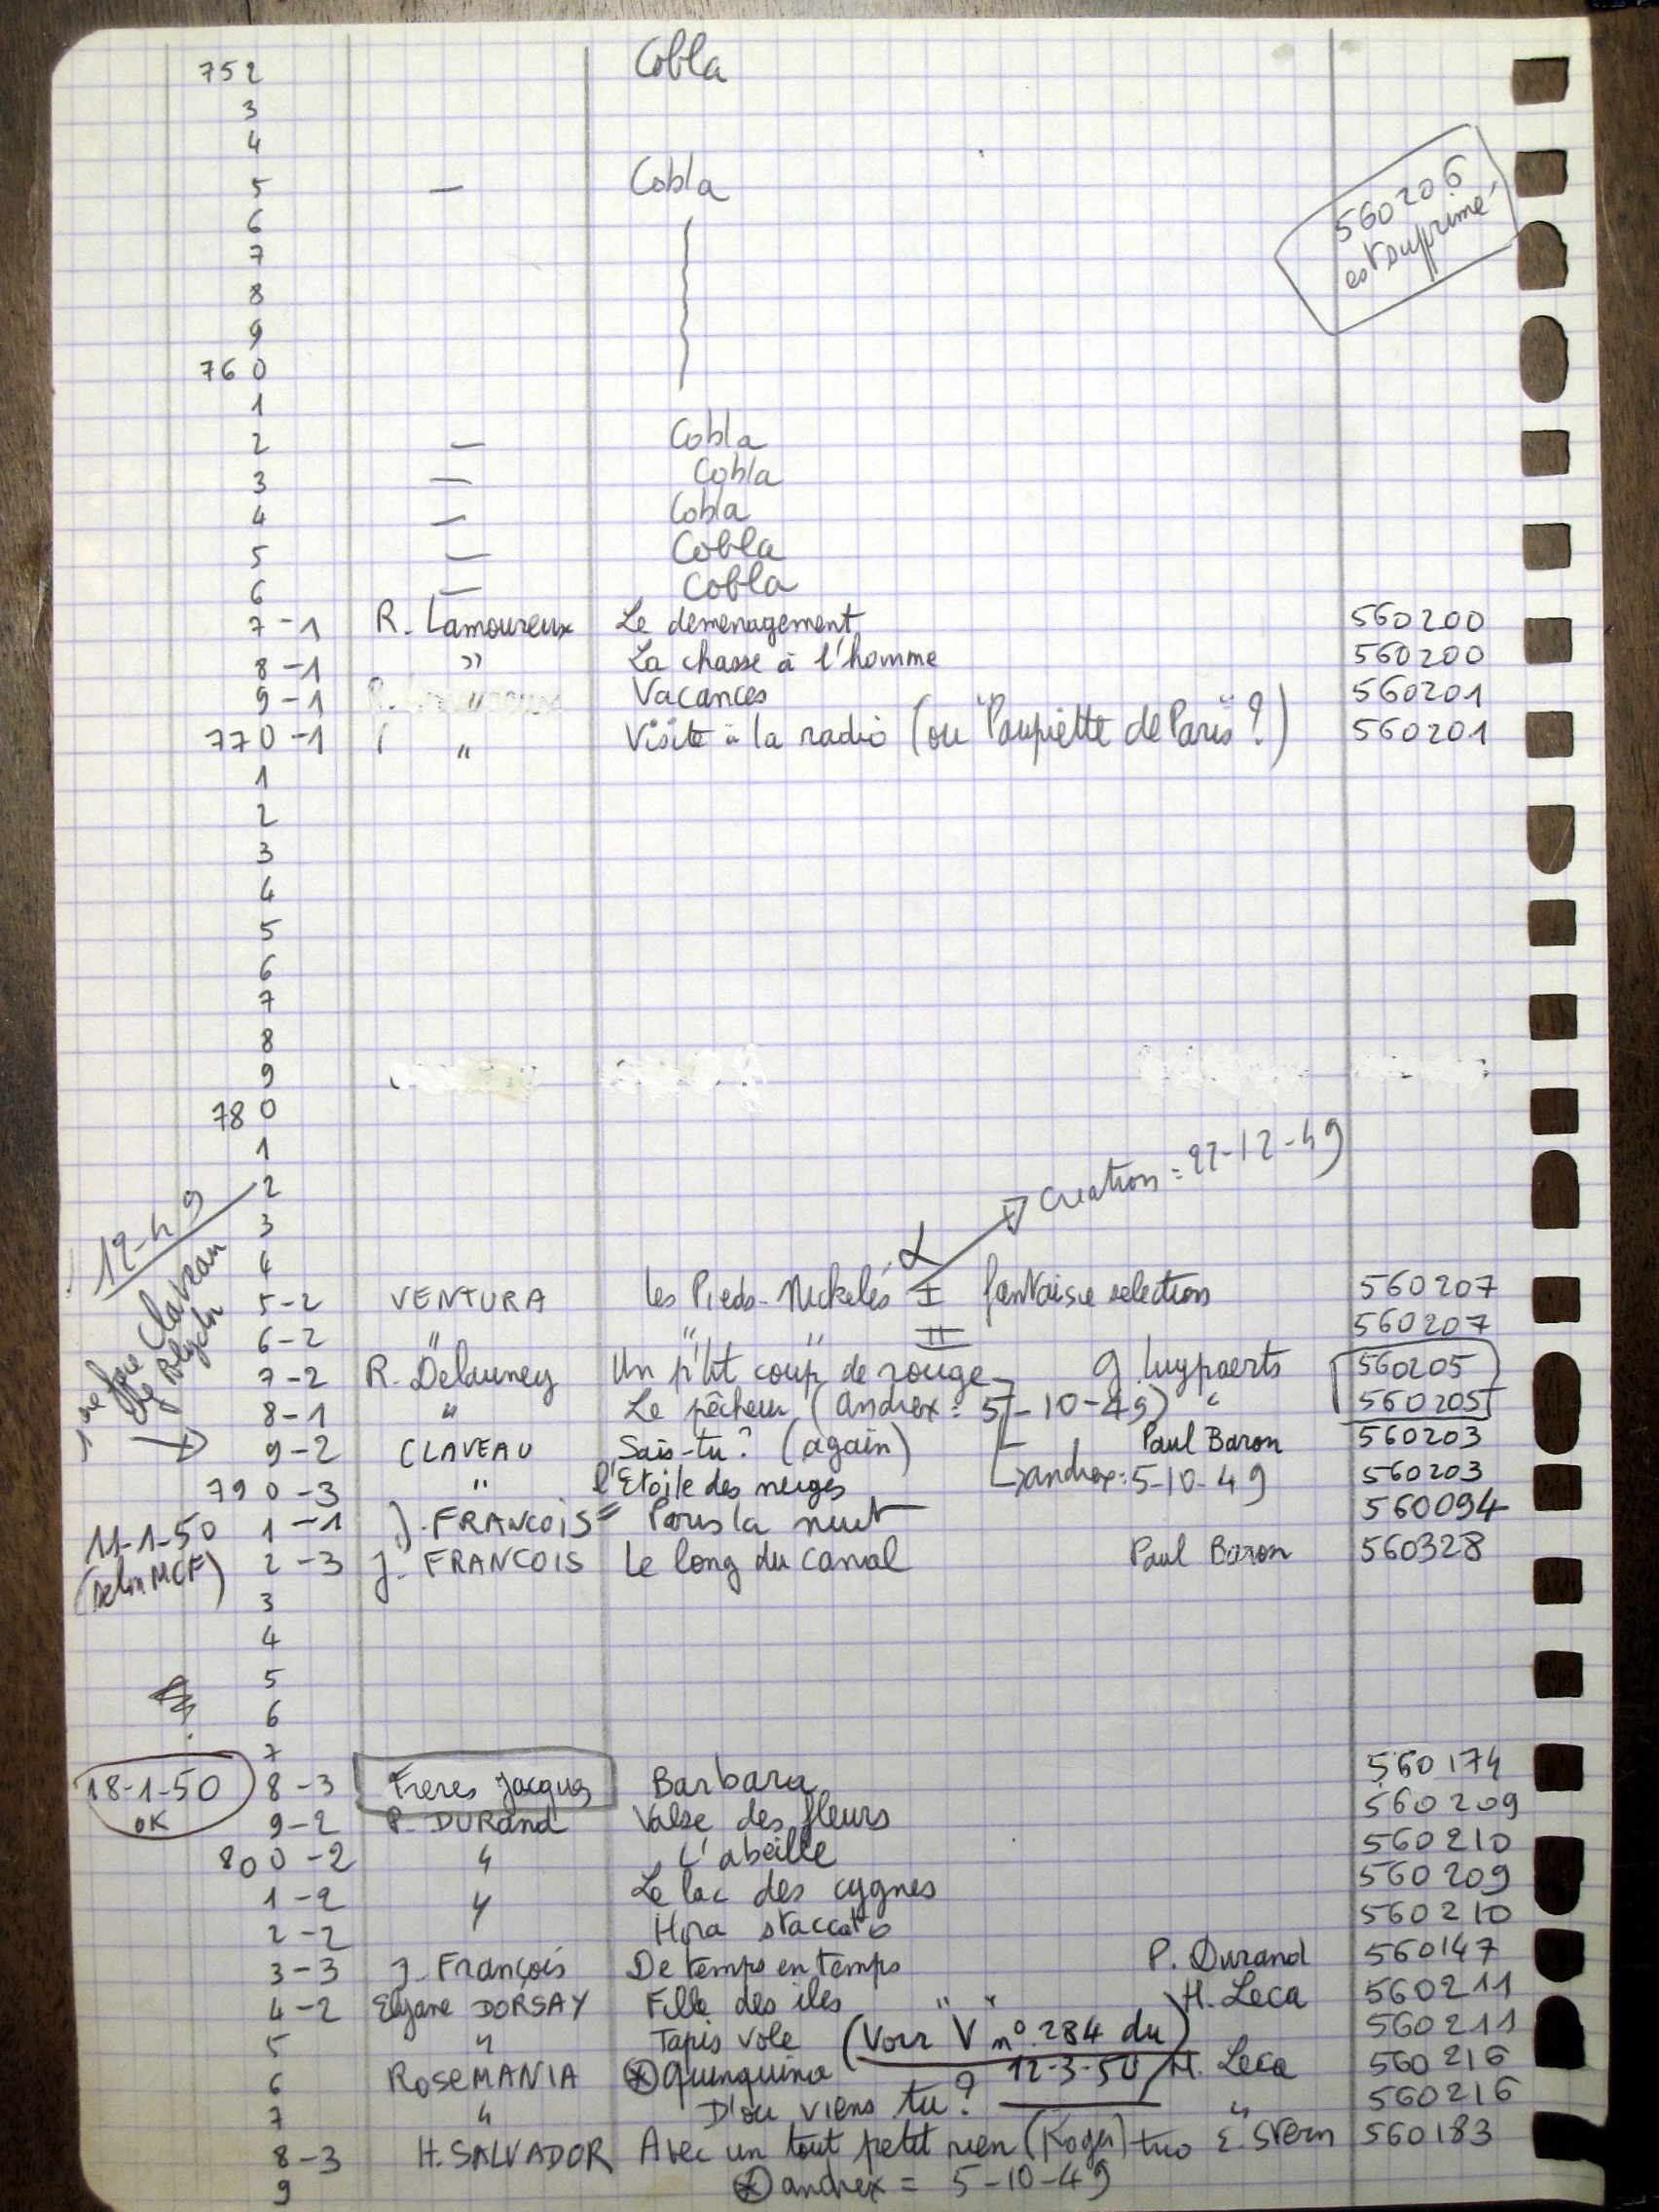 752 Cobla
3
4
5 — Cobla
560206
est supprimé
6
7
8
9
760
1
2 — Cobla
3 — Cobla
4 — Cobla
5 — Cobla
6 — Cobla
7-1 R. Lamoureux Le demenagement 560200
8-1 " La chasse à l'homme 560200
9-1 " Vacances 560201
770-1 " Visite à la radio (ou "Paupiette de Paris"?) 560201
1
2
3
4
5
6
7
8
9
780
1
2
3
4
12-49
création = 22-12-49
5-2 VENTURA Les Pieds-Nickelés I fantaisie selection 560207
6-2 " " " II 560207
7-2 R. Delauney Un p'tit coup de rouge G. Luypaerts 560205
8-1 " Le pêcheur (andrex = 5-10-49) " 560205
9-2 CLAVEAU Sais-tu? (again) Paul Baron 560203
790-3 " l'Etoile des neiges andrex: 5-10-49 560203
11-1-50 1-1 J. FRANCOIS = Paris la nuit 560094
2-3 J. FRANCOIS Le long du canal Paul Baron 560328
3
4
5
6
7
18-1-50 8-3 Freres Jacques Barbara 560174
OK 9-2 P. DURAND Valse des fleurs 560209
800-2 " L'abeille 560210
1-2 " Le lac des cygnes 560209
2-2 Hora staccato 560210
3-3 J. François De temps en temps P. Durand 560147
4-2 Elyane DORSAY Fille des iles " " H. Leca 560211
5 " Tapis vole (Voir V n° 284 du 560211
6 ROSEMANIA Quinquina 12-3-50) H. Leca 560216
7 " D'ou viens tu? " 560216
8-3 H. SALVADOR Avec un tout petit rien (Roger) trio E. Stern 560183
9 andrex = 5-10-49